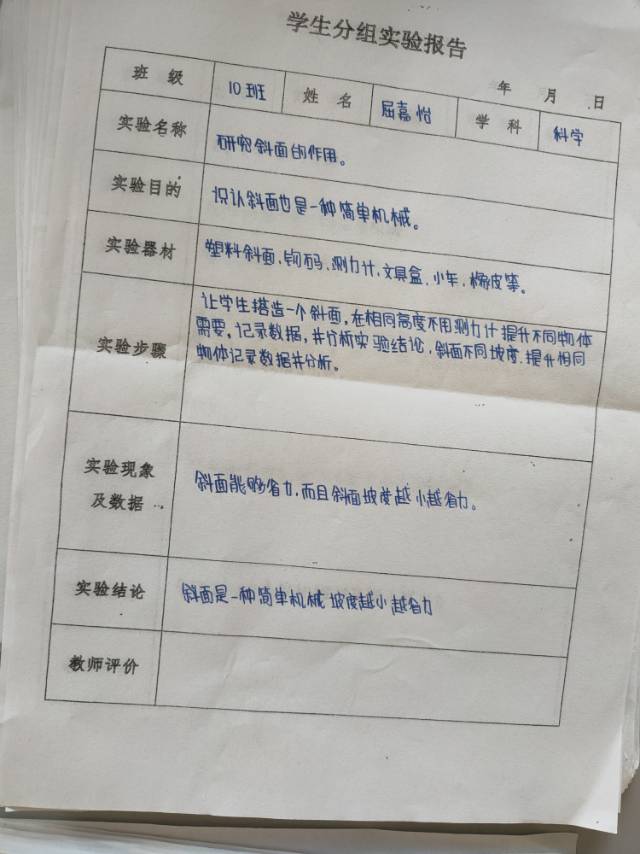 学生分组实验报告
年 月 日
班 级 10班 姓 名 屈嘉怡 学 科 科学
实验名称 研究斜面的作用。
实验目的 识认斜面也是一种简单机械。
实验器材 塑料斜面、钩码、测力计、文具盒、小车、橡皮等。
实验步骤 让学生搭造一个斜面,在相同高度不用测力计提升不同物体
需要,记录数据,并分析实验结论,斜面不同坡度,提升相同
物体记录数据并分析。
实验现象
及数据 斜面能够省力,而且斜面坡度越小越省力。
实验结论 斜面是一种简单机械 坡度越小越省力
教师评价